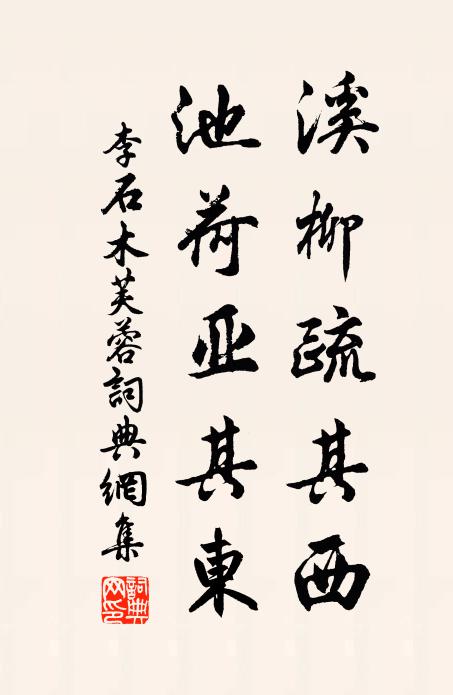 溪柳疏其西
池荷亚其東
李石木芙蓉詞典網集
詞典網印